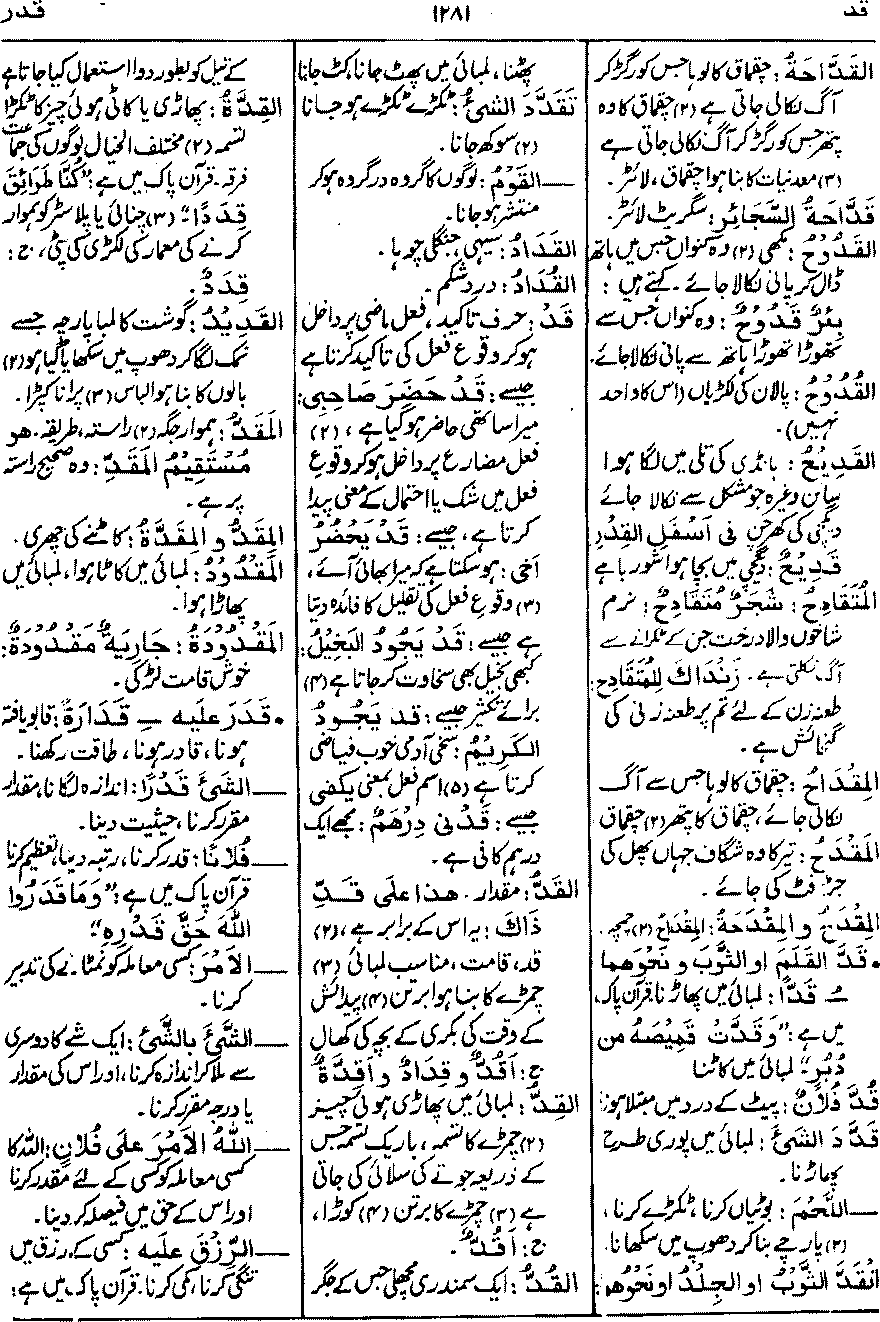 قد
١٢٨١
قدر
القَدَّاحَةُ : چقماق کا لوہا جس کو رگڑ کر
آگ نکالی جاتی ہے (۲) چقماق کا وہ
پتھر جس کو رگڑ کر آگ نکالی جاتی ہے
(۳) معدنیات کا بنا ہوا چقماق، لائٹر ۔
قَدَّاحَةُ السَّجَائِر : سگریٹ لائٹر ۔
القَدُوْحُ : مکھی (۲) وہ کنواں جس میں ہاتھ
ڈال کر پانی نکالا جائے ۔ کہتے ہیں :
بِئْرٌ قَدُوْحٌ : وہ کنواں جس سے
تھوڑا تھوڑا ہاتھ سے پانی نکالا جائے ۔
القُدُوْحُ : پالان کی لکڑیاں (اس کا واحد
نہیں) ۔
القَدِیْحُ : ہانڈی کی تلی میں لگا ہوا
سالن وغیرہ جو مشکل سے نکالا جائے
دیگچی کی کھرچن فی اَسْفَلِ القِدْرِ
قَدِیْحٌ : دیگچی میں بچا ہوا شوربا ہے
المُتَقَادِحُ : شَجَرٌ مُتَقَادِحٌ : نرم
شاخوں والا درخت جن کے ٹکرانے سے
آگ نکلتی ہے ۔ زَنْدَاكَ لِلْمُتَقَادِحِ :
طعنہ زن کے لئے تم پر طعنہ زنی کی
گنجائش ہے ۔
المِقْدَاحُ : چقماق کا لوہا جس سے آگ
نکالی جائے، چقماق کا پتھر (۲) چقماق
المَقْدَحُ : تیر کا وہ شگاف جہاں پھل کی
جڑ فٹ کی جائے ۔
المِقْدَحُ و المِقْدَحَةُ : المِقْدَاحُ (۲) چمچہ ۔
• قَدَّ القَلَمَ او الثَّوبَ و نَحْوَهما
ـُ قَدًّا : لمبائی میں پھاڑنا، قرآن پاک
میں ہے : ”وَقَدَّتْ قَمِیْصَهُ مِن
دُبُرٍ“ لمبائی میں کاٹنا
قُدَّ فُلَانٌ : پیٹ کے درد میں مبتلا ہونا
قَدَّدَ الشَّیْءَ : لمبائی میں پوری طرح
پھاڑنا ۔
— اللَّحْمَ : بوٹیاں کرنا، ٹکڑے کرنا،
(۲) پارچے بنا کر دھوپ میں سکھانا ۔
انْقَدَّ الثَّوْبُ او الجِلْدُ او نَحْوُهما :
پھٹنا، لمبائی میں پھٹ جانا، کٹ جانا
تَقَدَّدَ الشَّیْءُ : ٹکڑے ٹکڑے ہو جانا
(۲) سوکھ جانا ۔
— القَوْمُ : لوگوں کا گروہ در گروہ ہو کر
منتشر ہو جانا ۔
القَدَادُ : سیہی، جنگلی چوہا ۔
القُدَادُ : درد شکم ۔
قَدْ : حرف تاکید، فعل ماضی پر داخل
ہو کر وقوع فعل کی تاکید کرتا ہے
جیسے : قَدْ حَضَرَ صَاحِبِی :
میرا ساتھی حاضر ہو گیا ہے، (۲)
فعل مضارع پر داخل ہو کر وقوع
فعل میں شک یا احتمال کے معنی پیدا
کرتا ہے، جیسے : قَدْ یَحْضُرُ
اَخِی : ہو سکتا ہے کہ میرا بھائی آئے،
(۳) وقوع فعل کی تقلیل کا فائدہ دیتا
ہے جیسے : قَدْ یَجُودُ البَخِیْلُ :
کبھی بخیل بھی سخاوت کر جاتا ہے (۴)
برائے تکثیر جیسے : قد یَجُودُ
الکَرِیْمُ : سخی آدمی خوب فیاضی
کرتا ہے (۵) اسم فعل بمعنی یکفی
جیسے : قَدْنِی دِرْهَمٌ : مجھے ایک
درہم کافی ہے ۔
القَدُّ : مقدار ۔ هذا علی قَدِّ
ذَاكَ : یہ اس کے برابر ہے، (۲)
قد، قامت، مناسب لمبائی (۳)
چمڑے کا بنا ہوا برتن (۴) پیدائش
کے وقت کی بکری کے بچہ کی کھال
ج : اَقُدٌّ و قِدَادٌ و اَقِدَّةٌ
القِدُّ : لمبائی میں پھاڑی ہوئی چیز
(۲) چمڑے کا تسمہ، باریک تسمہ جس
کے ذریعہ جوتے کی سلائی کی جاتی
ہے (۳) چمڑے کا برتن (۴) کوڑا،
ج : اَقُدٌّ ۔
القُدُّ : ایک سمندری مچھلی جس کے جگر
کے تیل کو بطور دوا استعمال کیا جاتا ہے
القِدَّةُ : پھاڑی یا کاٹی ہوئی چیز کا ٹکڑا
تسمہ (۲) مختلف الخیال لوگوں کی جماعت
فرقہ ۔ قرآن پاک میں ہے : ”کُنَّا طَرَائِقَ
قِدَدًا“ (۳) چنائی یا پلاسٹر کو ہموار
کرنے کی معمار کی لکڑی کی پٹی، ج :
قِدَدٌ ۔
القَدِیْدُ : گوشت کا لمبا پارچہ جسے
نمک لگا کر دھوپ میں سکھایا گیا ہو (۲)
بالوں کا بنا ہوا لباس (۳) پرانا کپڑا ۔
المَقَدُّ : ہموار جگہ (۲) راستہ، طریقہ ۔ هو
مُسْتَقِیْمُ المَقَدِّ : وہ صحیح راستہ
پر ہے ۔
المِقَدُّ و المِقَدَّةُ : کاٹنے کی چھری ۔
المَقْدُوْدُ : لمبائی میں کاٹا ہوا، لمبائی میں
پھاڑا ہوا ۔
المَقْدُوْدَةُ : جَارِیَةٌ مَقْدُودَةٌ :
خوش قامت لڑکی ۔
• قَدَرَ علیه ـِ قَدَارَةً : قابو یافتہ
ہونا، قادر ہونا، طاقت رکھنا ۔
— الشَّیْءَ قَدْرًا : اندازہ لگانا، مقدار
مقرر کرنا، حیثیت دینا ۔
— فُلَانًا : قدر کرنا، رتبہ دینا، تعظیم کرنا
قرآن پاک میں ہے : ”وَمَا قَدَرُوا
اللهَ حَقَّ قَدْرِهِ“
— الاَمْرَ : کسی معاملہ کو نمٹانے کی تدبیر
کرنا ۔
— الشَّیْءَ بِالشَّیْءِ : ایک شے کا دوسری
سے ملا کر اندازہ کرنا، اور اس کی مقدار
یا درجہ مقرر کرنا ۔
— اللهُ الاَمْرَ عَلی فُلَانٍ : اللہ کا
کسی معاملہ کو کسی کے لئے مقدر کرنا
اور اس کے حق میں فیصلہ کر دینا ۔
— الرِّزْقَ علیه : کسی کے رزق میں
تنگی کرنا، کمی کرنا ۔ قرآن پاک میں ہے :